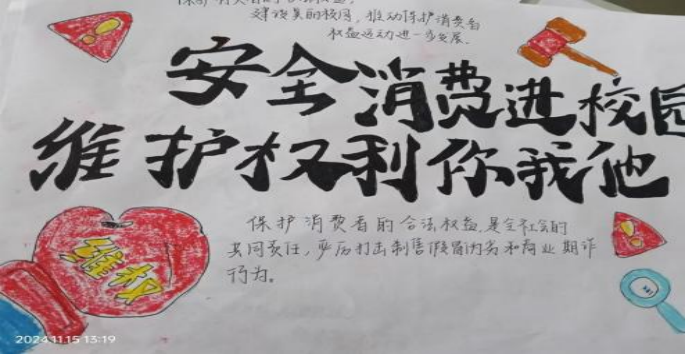 保护消费者的
建设美的校园，推动保护消费者
权益运动进一步发展.
安全消费进校园
维护权利你我他
维权
保护消费者的合法权益,是全社会的
共同责任，严厉打击制售假冒伪劣和商业期诈
行为。
2024.11.15 13:19